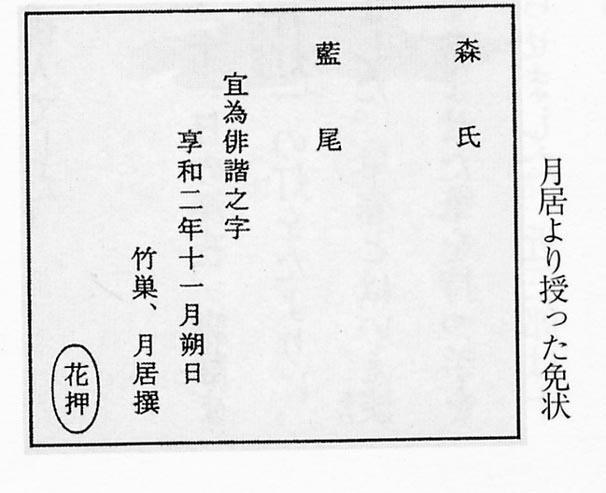 月居より授った免状
森氏
藍尾
宜為俳諧之字
享和二年十一月朔日
竹巣、月居撰
花押